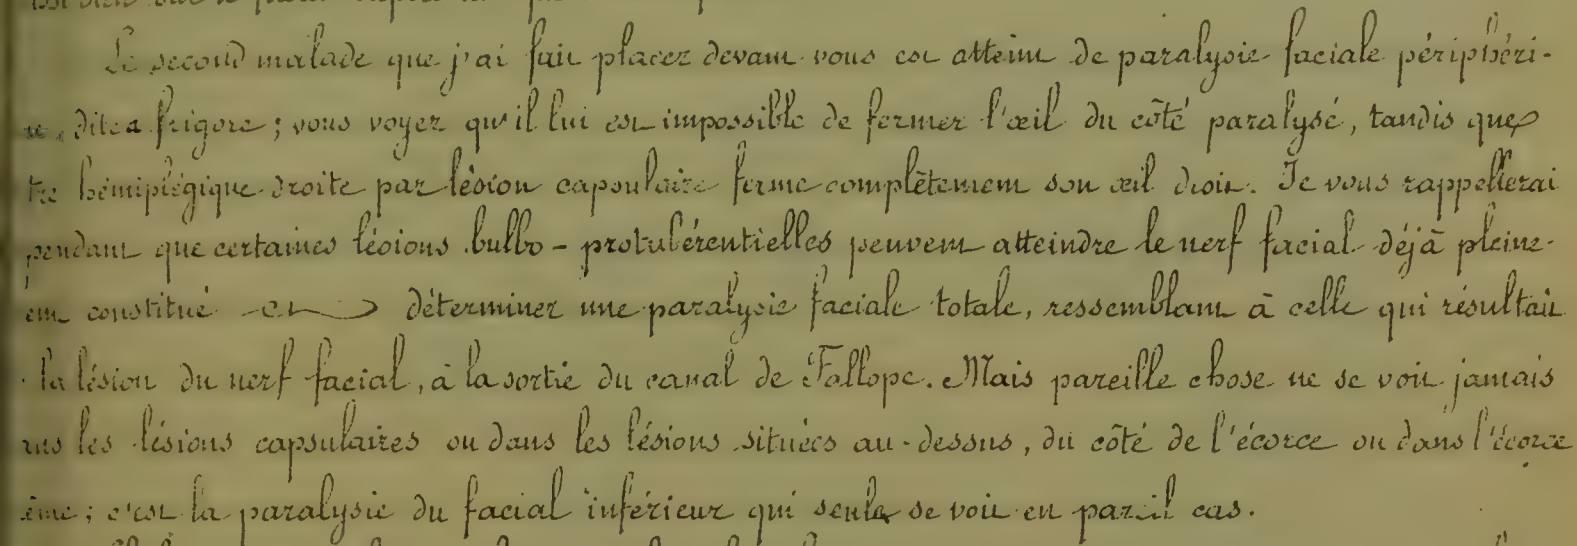 Le second malade que j'ai fait placer devant vous est atteint de paralysie faciale périphéri-
ue, dite a frigore ; vous voyez qu'il lui est impossible de fermer l'œil du côté paralysé, tandis que
tre hémiplégique droite par lésion capsulaire ferme complètement son œil droit. Je vous rappellerai
pendant que certaines lésions bulbo-protubérentielles peuvent atteindre le nerf facial déjà pleine-
ent constitué et déterminer une paralysie faciale totale, ressemblant à celle qui résultait
la lésion du nerf facial, à la sortie du canal de Fallope. Mais pareille chose ne se voit jamais
ans les lésions capsulaires ou dans les lésions situées au-dessus, du côté de l'écorce ou dans l'écorce
ême ; c'est la paralysie du facial inférieur qui seule se voit en pareil cas.